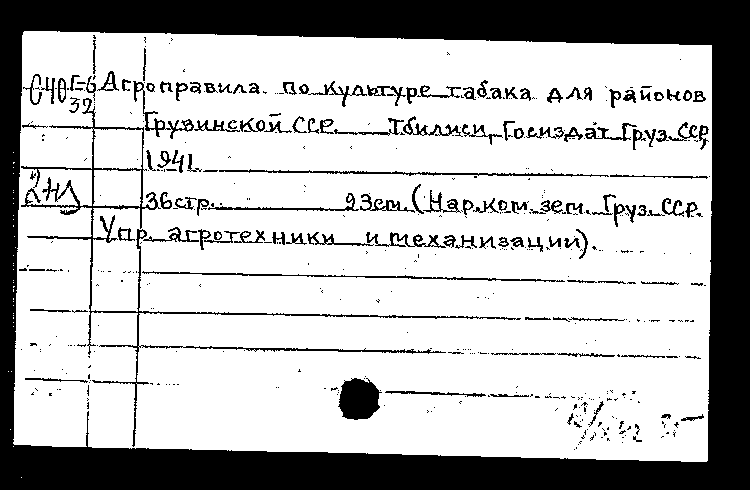 Г-6 Агроправила по культуре табака для районов
32
Грузинской ССР. Тбилиси, Госиздат Груз. ССР,
1941
36стр. 23см. (Нар.ком. зем. Груз. ССР.
Упр. агротехники и механизации).